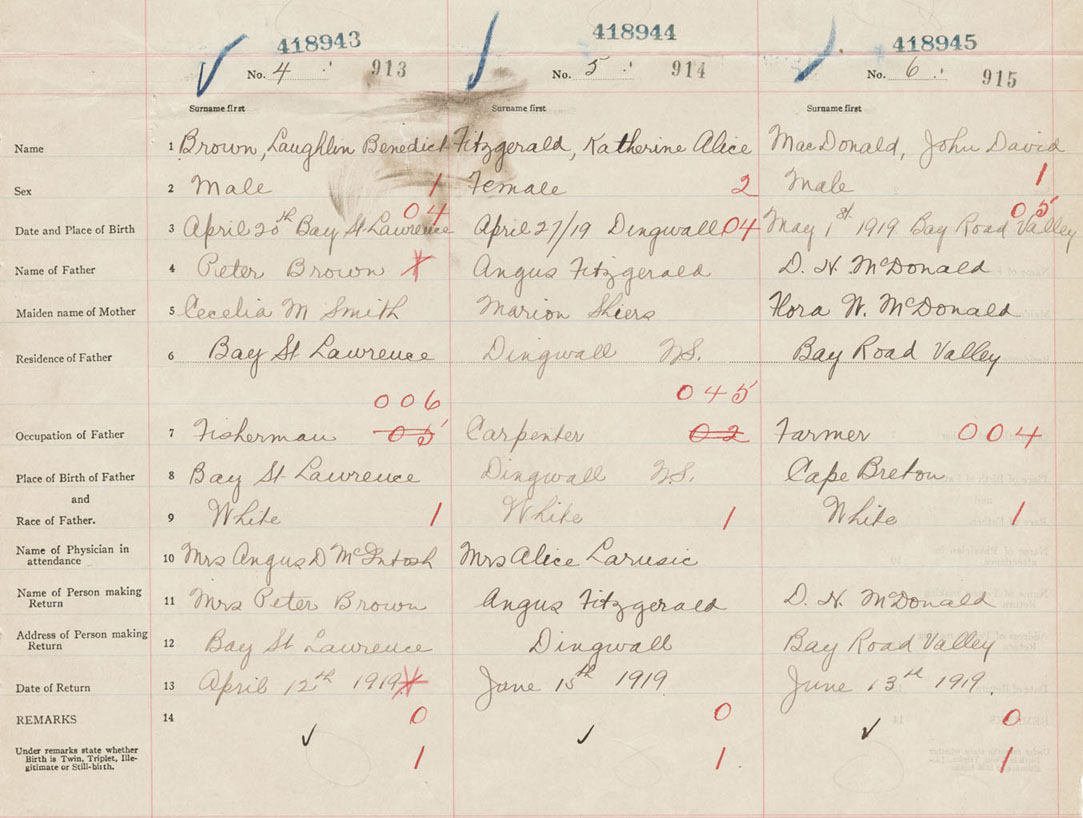 418943 418944 418945
No. 4 913 No. 5 914 No. 6 915
Surname first Surname first Surname first
Name 1 Brown, Laughlin Benedict Fitzgerald, Katherine Alice MacDonald, John David
Sex 2 Male 1 Female 2 Male 1
04 05
Date and Place of Birth 3 April 20th Bay St Lawrence April 27/19 Dingwall 04 May 1st 1919 Bay Road Valley
Name of Father 4 Peter Brown Angus Fitzgerald D. N. McDonald
Maiden name of Mother 5 Cecelia M Smith Marion Shiers Flora W. McDonald
Residence of Father 6 Bay St Lawrence Dingwall N.S. Bay Road Valley
006 045
Occupation of Father 7 Fisherman 05 Carpenter 02 Farmer 004
Place of Birth of Father 8 Bay St Lawrence Dingwall N.S. Cape Breton
and
Race of Father. 9 White 1 White 1 White 1
Name of Physician in
attendance 10 Mrs Angus D McIntosh Mrs Alice Larusic
Name of Person making
Return 11 Mrs Peter Brown Angus Fitzgerald D. N. McDonald
Address of Person making
Return 12 Bay St Lawrence Dingwall Bay Road Valley
Date of Return 13 April 12th 1919 June 15th 1919 June 13th 1919.
REMARKS 14 0 0 0
Under remarks state whether
Birth is Twin, Triplet, Ille-
gitimate or Still-birth. 1 1 1